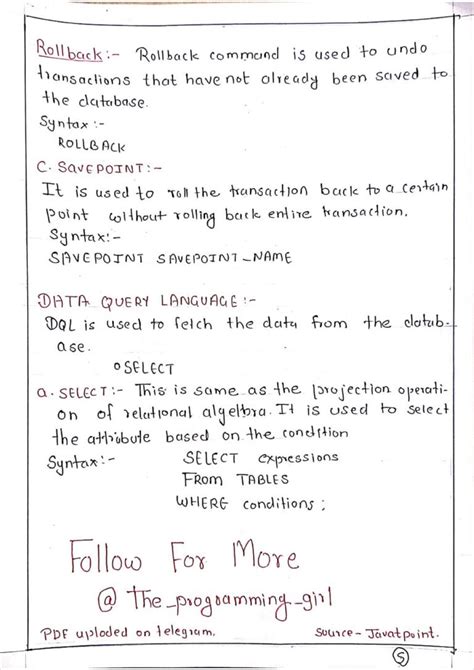 Rollback:- Rollback command is used to undo
transactions that have not already been saved to
the database.
Syntax:-
ROLLBACK
C. SAVEPOINT:-
It is used to roll the transaction back to a certain
point without rolling back entire transaction.
Syntax:-
SAVEPOINT SAVEPOINT_NAME
DATA QUERY LANGUAGE:-
DQL is used to fetch the data from the datab-
ase.
o SELECT
a. SELECT:- This is same as the projection operati-
on of relational algebra. It is used to select
the attribute based on the condition
Syntax:- SELECT expressions
FROM TABLES
WHERE conditions;
Follow For More
@the_programming_girl
PDF uploded on telegram. Source - Javatpoint.
5